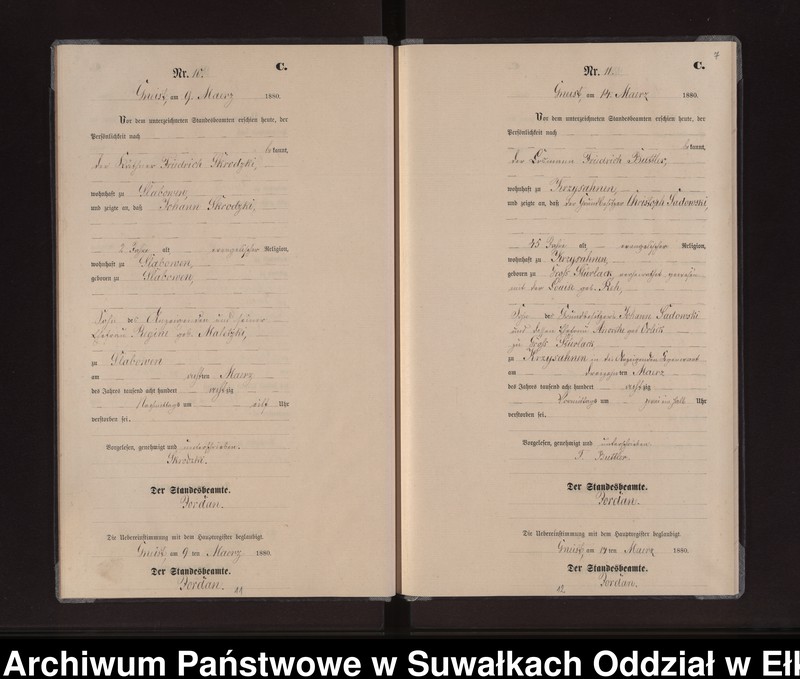 Nr. 10.
C.
Gneist, am 9. Maerz 1880.
Vor dem unterzeichneten Standesbeamten erschien heute, der
Persönlichkeit nach
bekannt,
der Friedrich Skrodzki,
wohnhaft zu Glabowen,
und zeigte an, daß Johann Skrodzki,
2 Jahre alt, evangelischer Religion,
wohnhaft zu Glabowen,
geboren zu Glabowen,
Sohn des Anzeigenden und seiner
Ehefrau Regine geb.
zu Glabowen
am achten Maerz
des Jahres tausend acht hundert achtzig
Nachmittags um Uhr
verstorben sei.
Vorgelesen, genehmigt und unterschrieben.
Skrodzki.
Der Standesbeamte.
Jordan.
Die Uebereinstimmung mit dem Hauptregister beglaubigt.
Gneist, am 9 ten Maerz 1880.
Der Standesbeamte.
Jordan.
7
Nr. 11.
C.
Gneist, am 14. Maerz 1880.
Vor dem unterzeichneten Standesbeamten erschien heute, der
Persönlichkeit nach
bekannt,
der Losmann Friedrich Buttler,
wohnhaft zu Krzysahnen,
und zeigte an, daß der Grundbesitzer Christoph Sadowski,
45 Jahre alt, evangelischer Religion,
wohnhaft zu Krzysahnen,
geboren zu Groß Stürlack, verheirathet gewesen
mit der geb.
Sohn des Grundbesitzers Johann Sadowski
und dessen Ehefrau geb.
zu Groß Stürlack
zu Krzysahnen in des Anzeigenden Gegenwart
am ten Maerz
des Jahres tausend acht hundert achtzig
Vormittags um Uhr
verstorben sei.
Vorgelesen, genehmigt und unterschrieben
F. Buttler
Der Standesbeamte.
Jordan.
Die Uebereinstimmung mit dem Hauptregister beglaubigt.
Gneist, am 14 ten Maerz 1880.
Der Standesbeamte.
Jordan.
12
Archiwum Państwowe w Suwałkach Oddział w Ełk